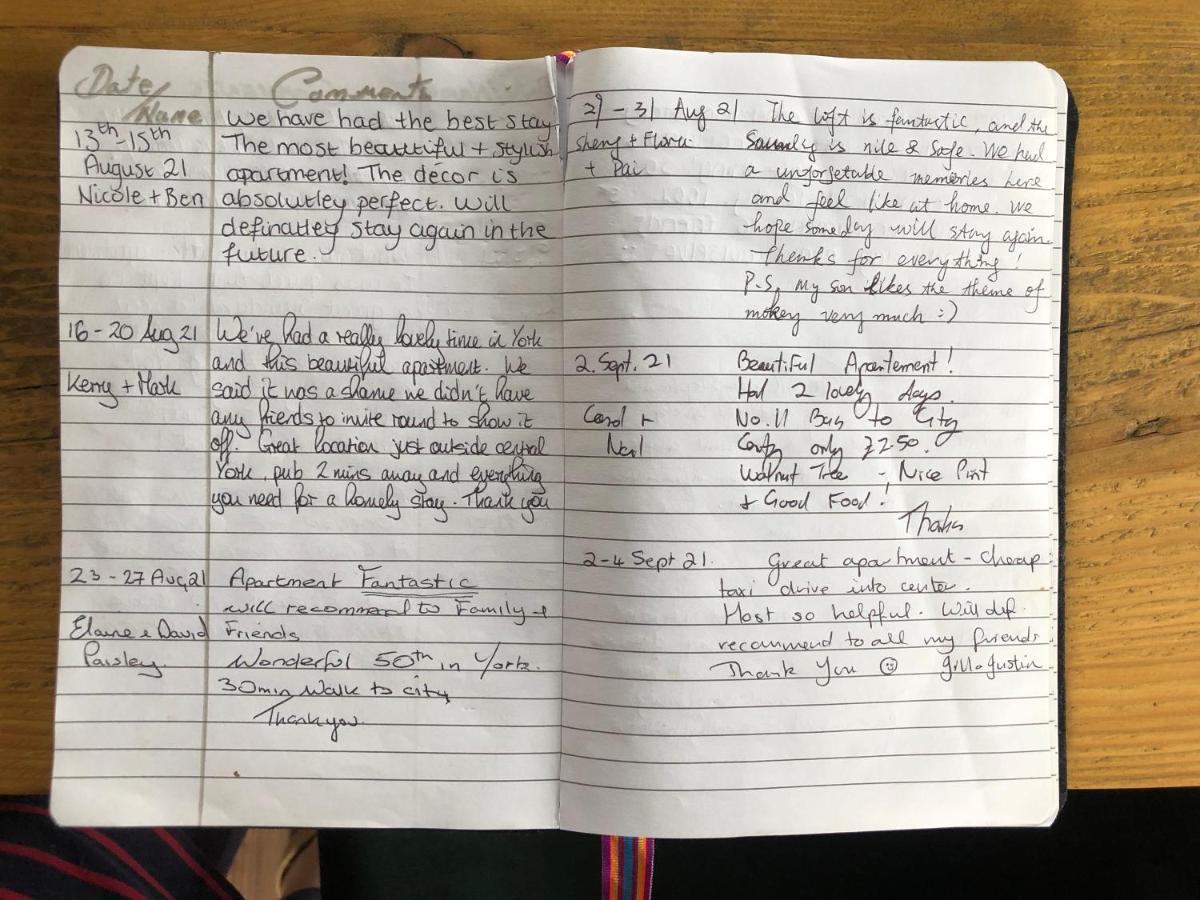 Date/Name Comments
13th-15th
August 21
Nicole + Ben
We have had the best stay
The most beautiful + stylish
apartment! The décor is
absolutley perfect. Will
definatley stay again in the
future.
16 - 20 Aug 21
Kerry + Mark
We've had a really lovely time in York
and this beautiful apartment. We
said it was a shame we didn't have
any friends to invite round to show it
off. Great location just outside central
York, pub 2 mins away and everything
you need for a homely stay. Thank you
23 - 27 Aug 21
Elaine & David
Paisley
Apartment Fantastic
will recommend to Family &
Friends
Wonderful 50th in York.
30min walk to city
Thankyou.
29 - 31 Aug 21
+ Pai
The loft is fantastic, and the
is nice & safe. We had
a unforgetable memories here
and feel like at home. We
hope someday will stay again.
Thanks for everything!
P.S. My son likes the theme of
mokey very much :)
2. Sept. 21
Carol +
Neil
Beautiful Apartement!
Had 2 lovely days.
No. 11 Bus to City
only £2.50.
Walnut Tree - Nice Pint
+ Good Food!
Thanks
2-4 Sept 21.
Great apartment - cheap
taxi drive into center.
Host so helpful. Will def.
recommend to all my friends
Thank You ☺ Justin